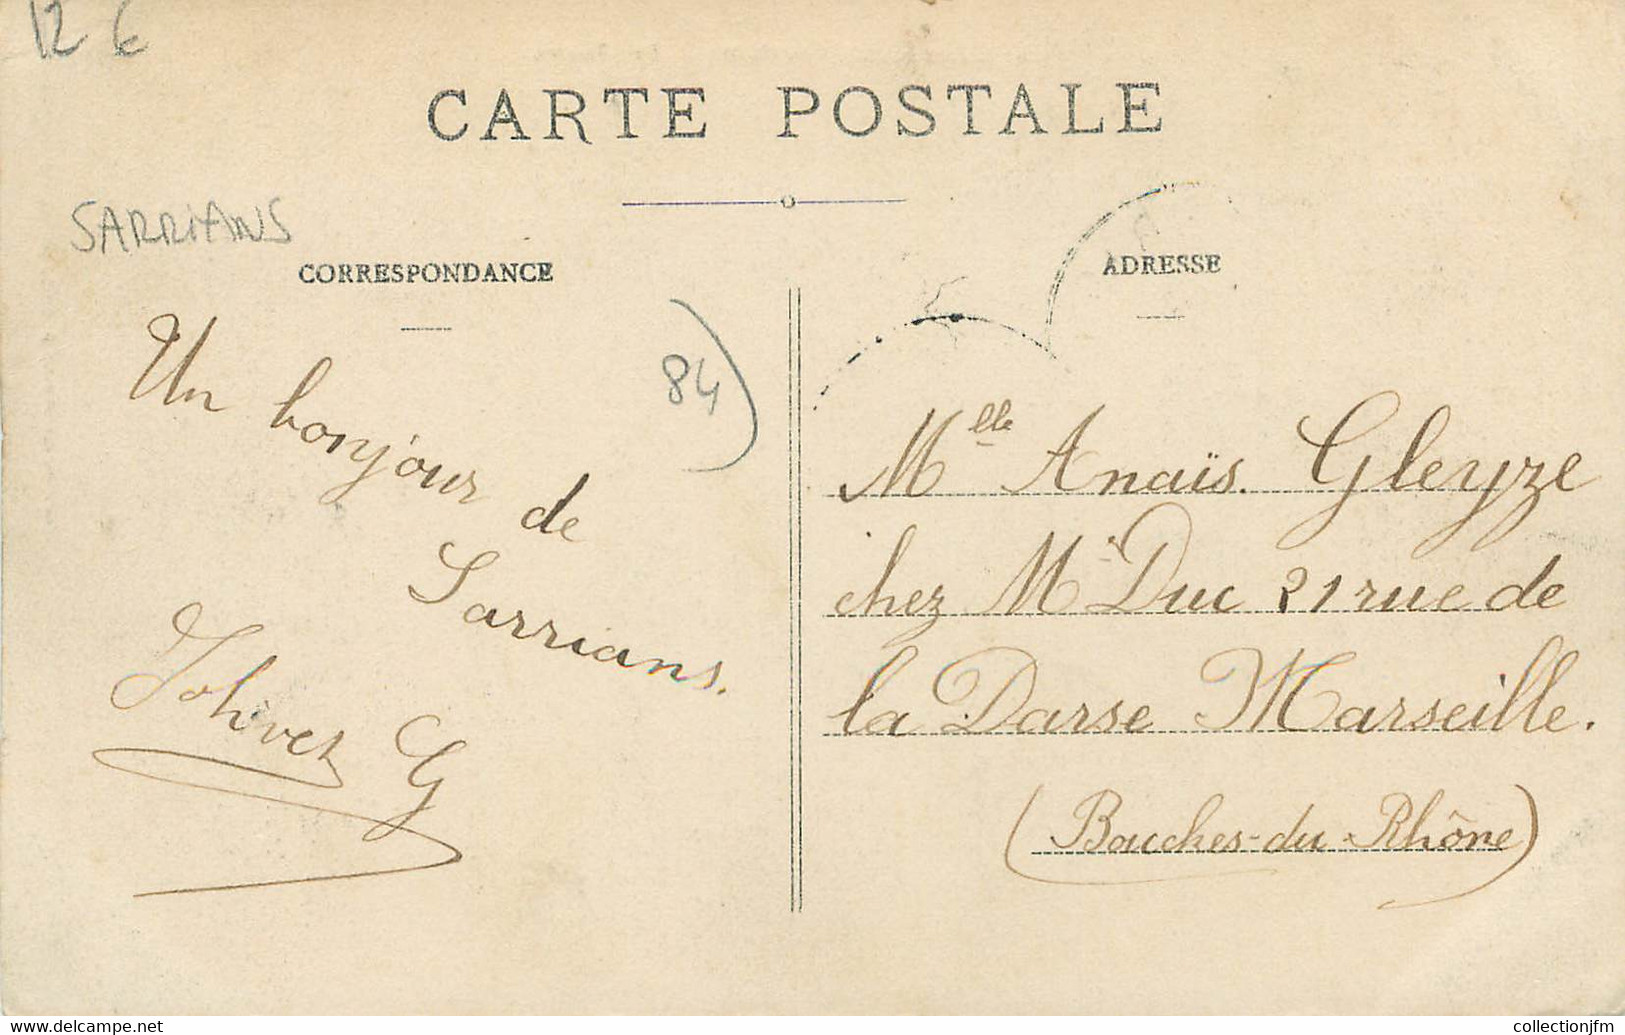 12 €
CARTE POSTALE
SARRIANS
CORRESPONDANCE
84)
Un bonjour de
Sarrians.
G
ADRESSE
Mlle Anaïs. Gleyze
chez Mr Duc 21 rue de
la Darse Marseille.
(Bouches-du-Rhône)
www.delcampe.net
collectionjfm